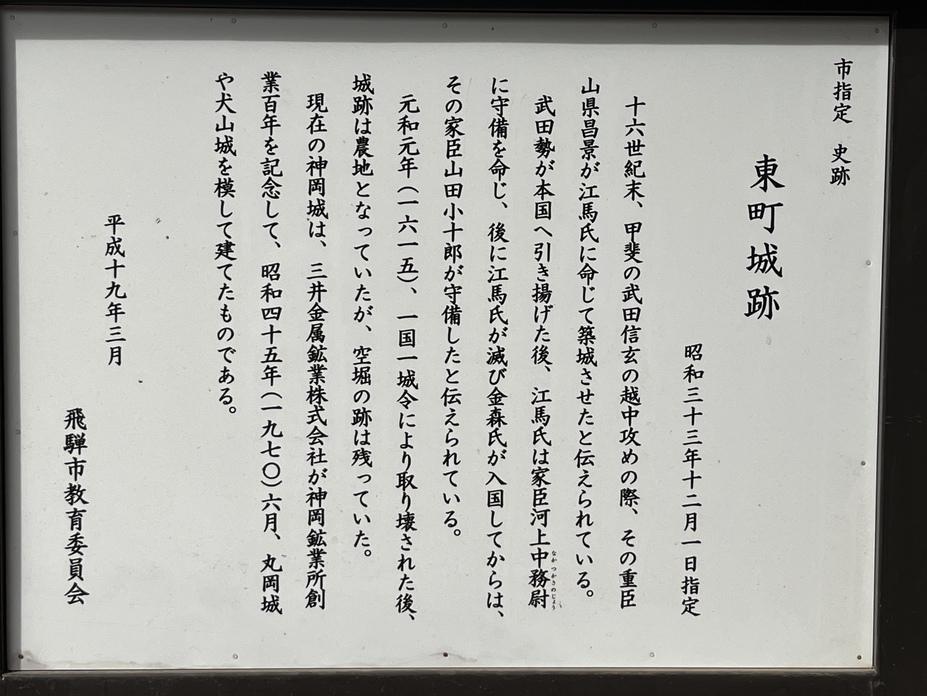 市指定 史跡
東町城跡
昭和三十三年十二月一日指定
十六世紀末、甲斐の武田信玄の越中攻めの際、その重臣
山県昌景が江馬氏に命じて築城させたと伝えられている。
武田勢が本国へ引き揚げた後、江馬氏は家臣河上中務尉
なかつかさのじょう
に守備を命じ、後に江馬氏が滅び金森氏が入国してからは、
その家臣山田小十郎が守備したと伝えられている。
元和元年(一六一五)、一国一城令により取り壊された後、
城跡は農地となっていたが、空堀の跡は残っていた。
現在の神岡城は、三井金属鉱業株式会社が神岡鉱業所創
業百年を記念して、昭和四十五年(一九七〇)六月、丸岡城
や犬山城を模して建てたものである。
平成十九年三月
飛騨市教育委員会